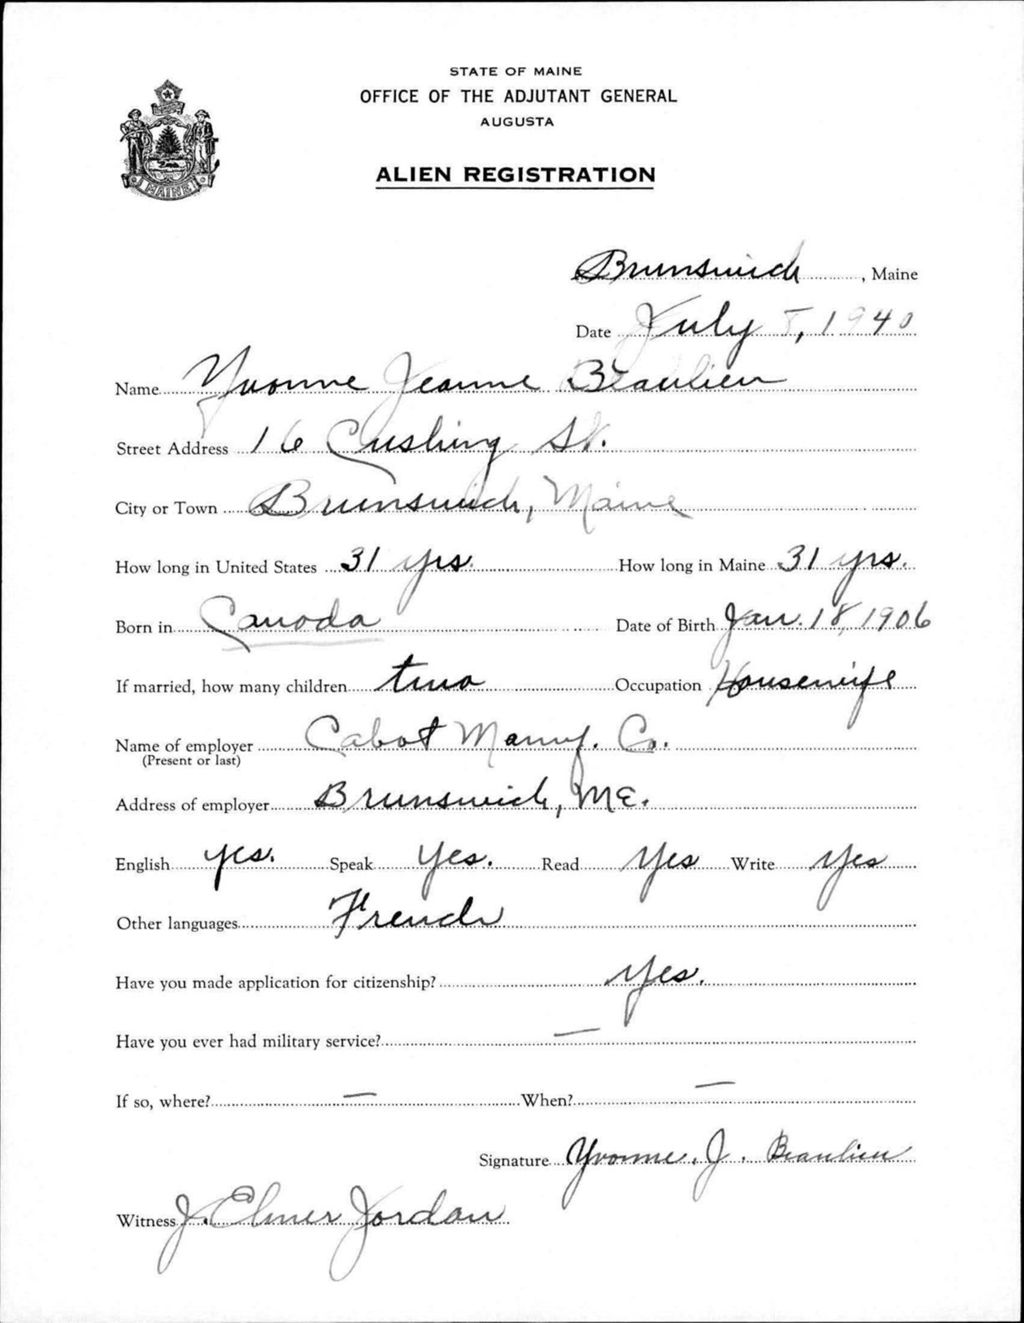 STATE OF MAINE
OFFICE OF THE ADJUTANT GENERAL
AUGUSTA
ALIEN REGISTRATION
MAINE
Brunswick, Maine
Date July 5, 1940
Name Yvonne Jeanne Beaulieu
Street Address 16 Cushing St.
City or Town Brunswick, Maine
How long in United States 31 yrs. How long in Maine 31 yrs.
Born in Canada Date of Birth Jan. 18, 1906
If married, how many children two Occupation Housewife
Name of employer Cabot Manuf. Co.
(Present or last)
Address of employer Brunswick, ME.
English yes. Speak Yes. Read Yes Write Yes
Other languages French
Have you made application for citizenship? Yes.
Have you ever had military service? —
If so, where? — When? —
Signature Yvonne. J. Beaulieu
Witness J. Elmer Jordan